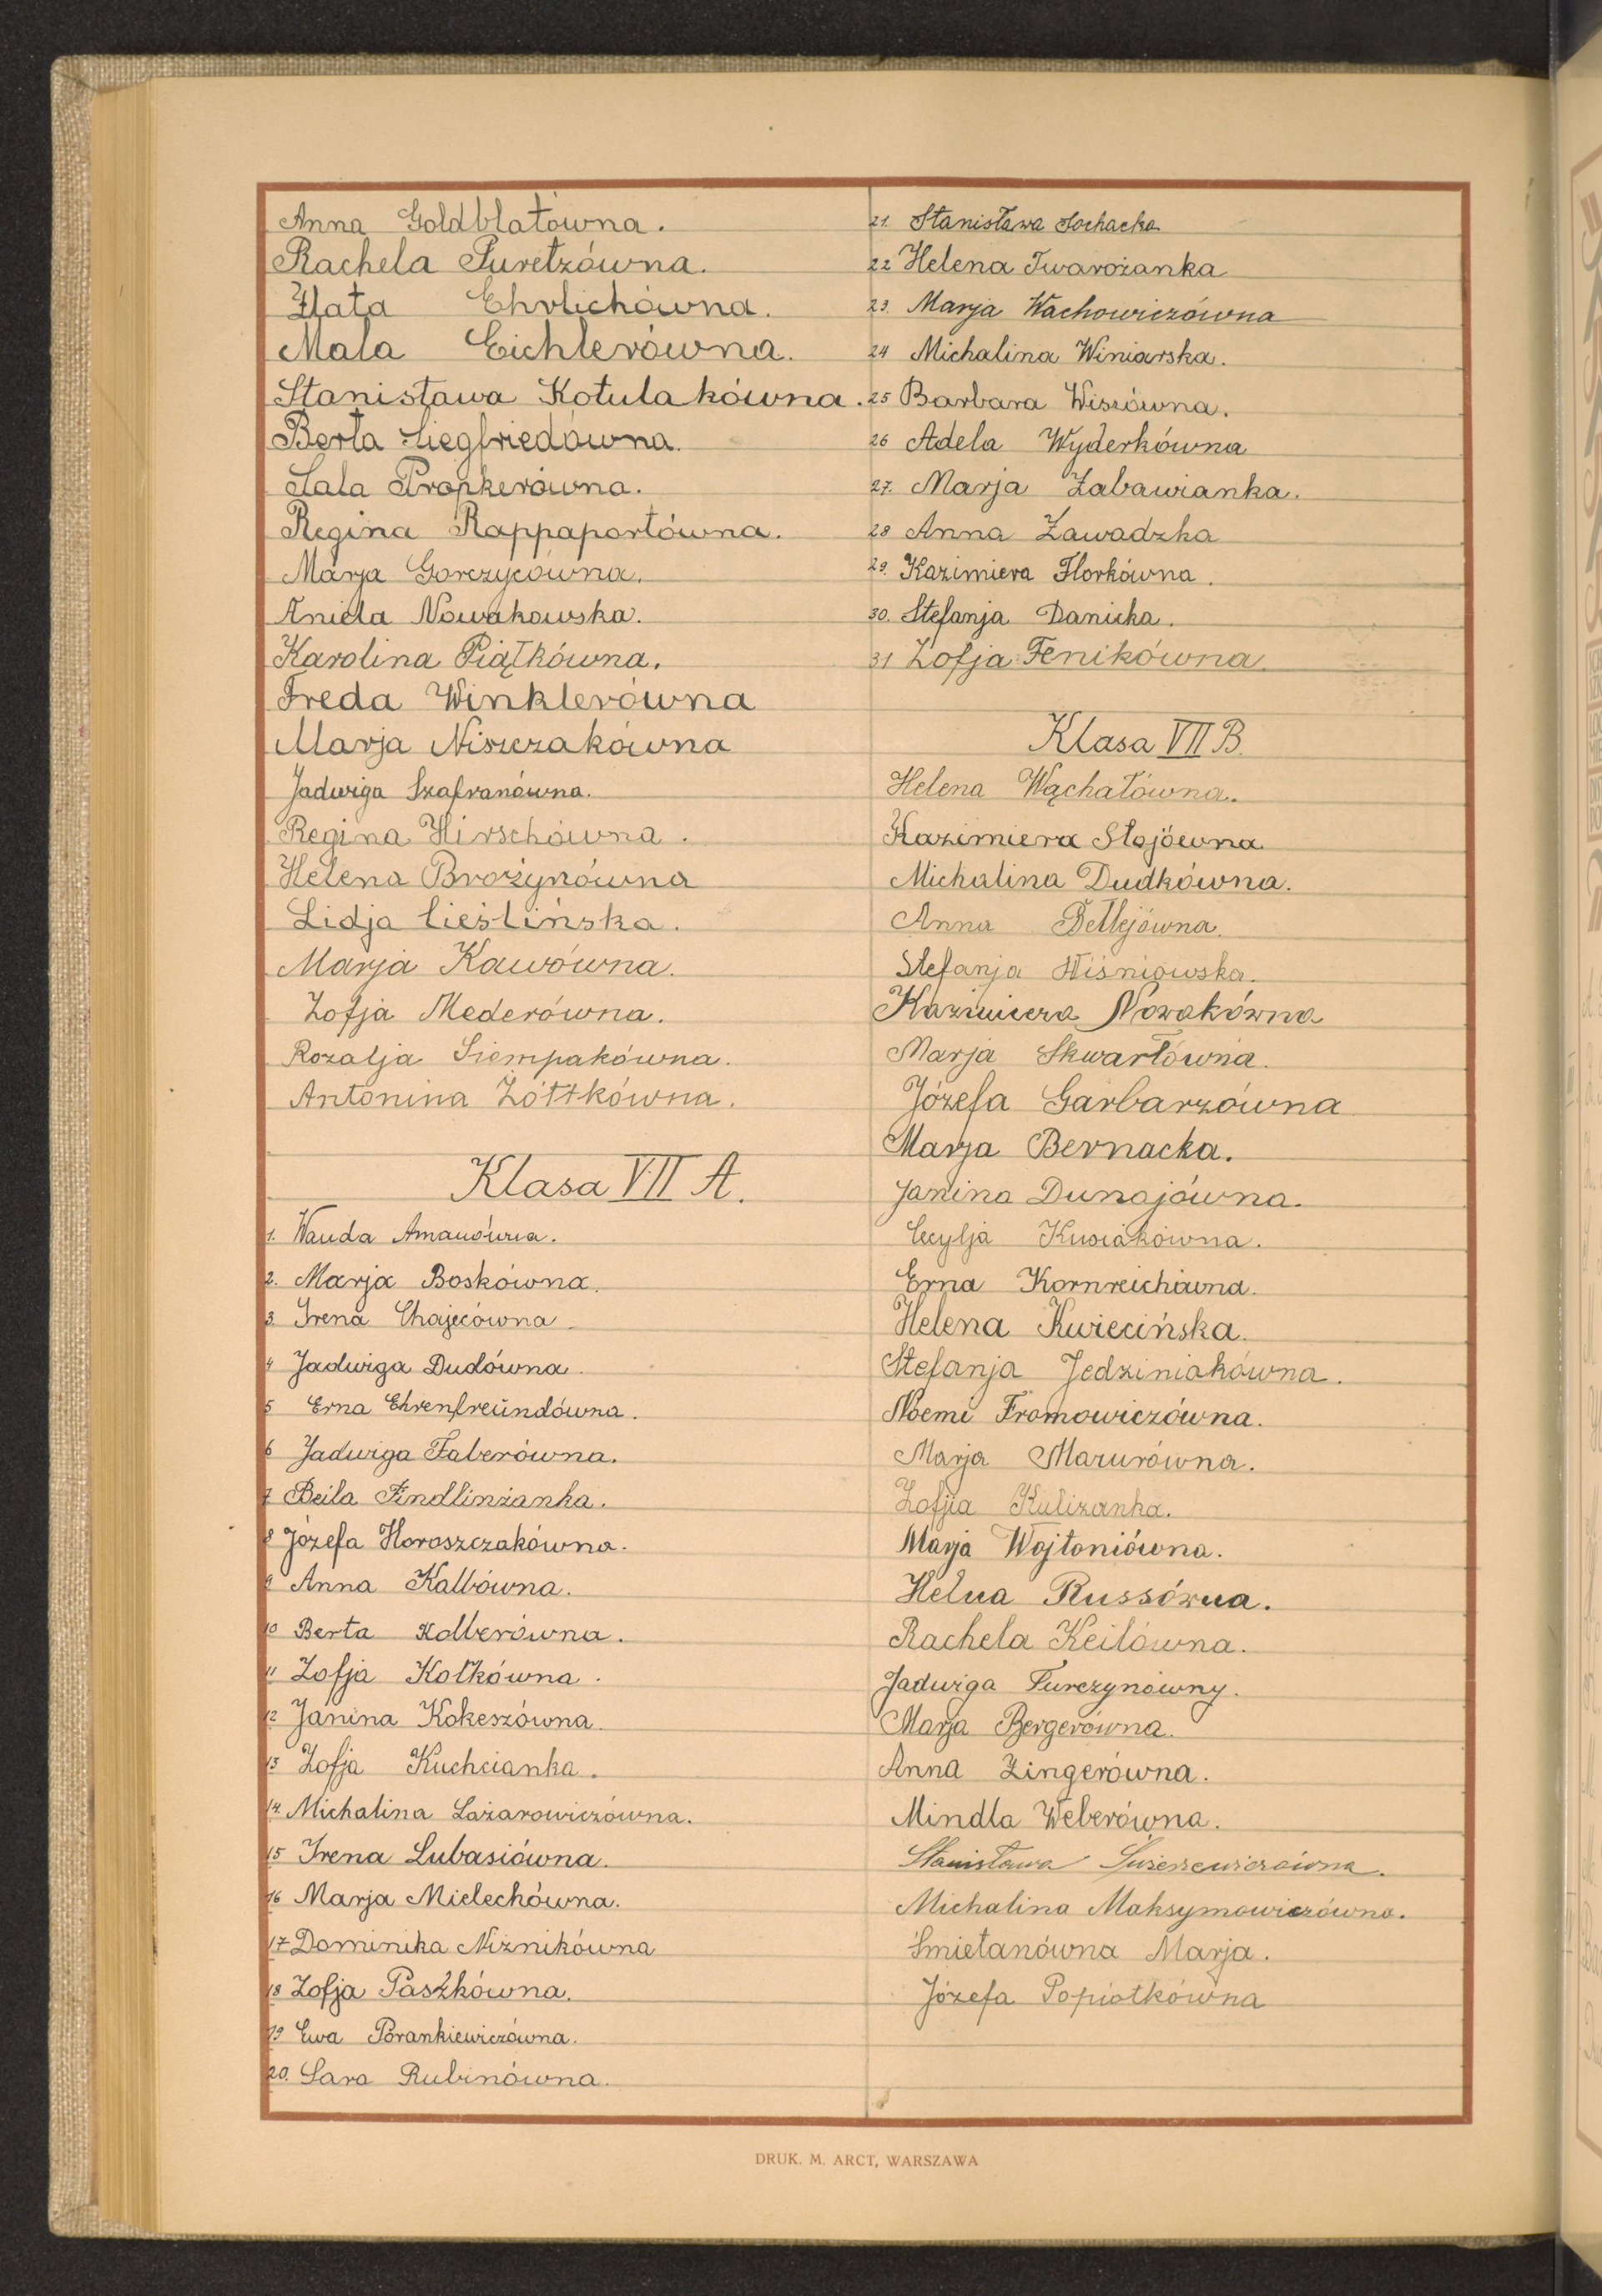 Anna Goldblatówna.
Rachela Puretzówna.
Złata Ehrlichówna.
Mala Eichlerówna.
Stanisława Kotulakówna.
Berta Siegfriedówna.
Sala Propkerówna.
Regina Rappaportówna.
Marja Gorczycówna.
Aniela Nowakowska.
Karolina Piątkówna.
Freda Winklerówna
Marja Niszczakówna
Jadwiga Szafranówna.
Regina Hirschówna.
Helena Brożynówna
Lidja Cieślińska.
Marja Kawówna.
Zofja Mederówna.
Rozalja Siempakówna.
Antonina Żółtkówna.
Klasa VII A.
1. Wanda Amanówna.
2. Marja Boskówna.
3. Irena Chajecówna
4 Jadwiga Dudówna.
5 Erna Ehrenfreundówna.
6 Jadwiga Faberówna.
7 Beila Findlinżanka.
8 Józefa Horoszczakówna.
9 Anna Kalbówna.
10 Berta Kolberówna.
11 Zofja Kołkówna.
12 Janina Kokeszówna.
13 Zofja Kuchcianka.
14. Michalina Łazarowiczówna.
15 Irena Lubasiówna.
16 Marja Mielechówna.
17 Dominika Niżnikówna
18 Zofja Paszkówna.
19 Ewa Porankiewiczówna.
20. Sara Rubinówna.
21. Stanisława Sochacka
22 Helena Twarożanka
23. Marja Wachowiczówna
24 Michalina Winiarska.
25 Barbara Wiszówna.
26 Adela Wyderkówna
27. Marja Zabawianka.
28 Anna Zawadzka
29. Kazimiera Florkówna.
30. Stefanja Danicka.
31 Zofja Fenikówna.
Klasa VII B.
Helena Wąchałówna.
Kazimiera Stojówna
Michalina Dudkówna.
Anna Betlejówna.
Stefanja Wiśniowska.
Kazimiera Nowakówna
Marja Skwarłówna.
Józefa Garbarzówna
Marja Bernacka.
Janina Dunajówna.
Cecylja Kusiakówna.
Erna Kornreichówna.
Helena Kwiecińska.
Stefanja Jedziniakówna.
Noemi Fromowiczówna.
Marja Mazurówna.
Zofjia Kulizanka.
Marja Wojtoniówna.
Helena Russówna.
Rachela Keilówna.
Jadwiga Turczynówny.
Marja Bergerówna.
Anna Zingerówna.
Mindla Weberówna.
Stanisława
Michalina Maksymowiczówna.
Śmietanówna Marja.
Józefa Popiołkówna
DRUK. M. ARCT, WARSZAWA